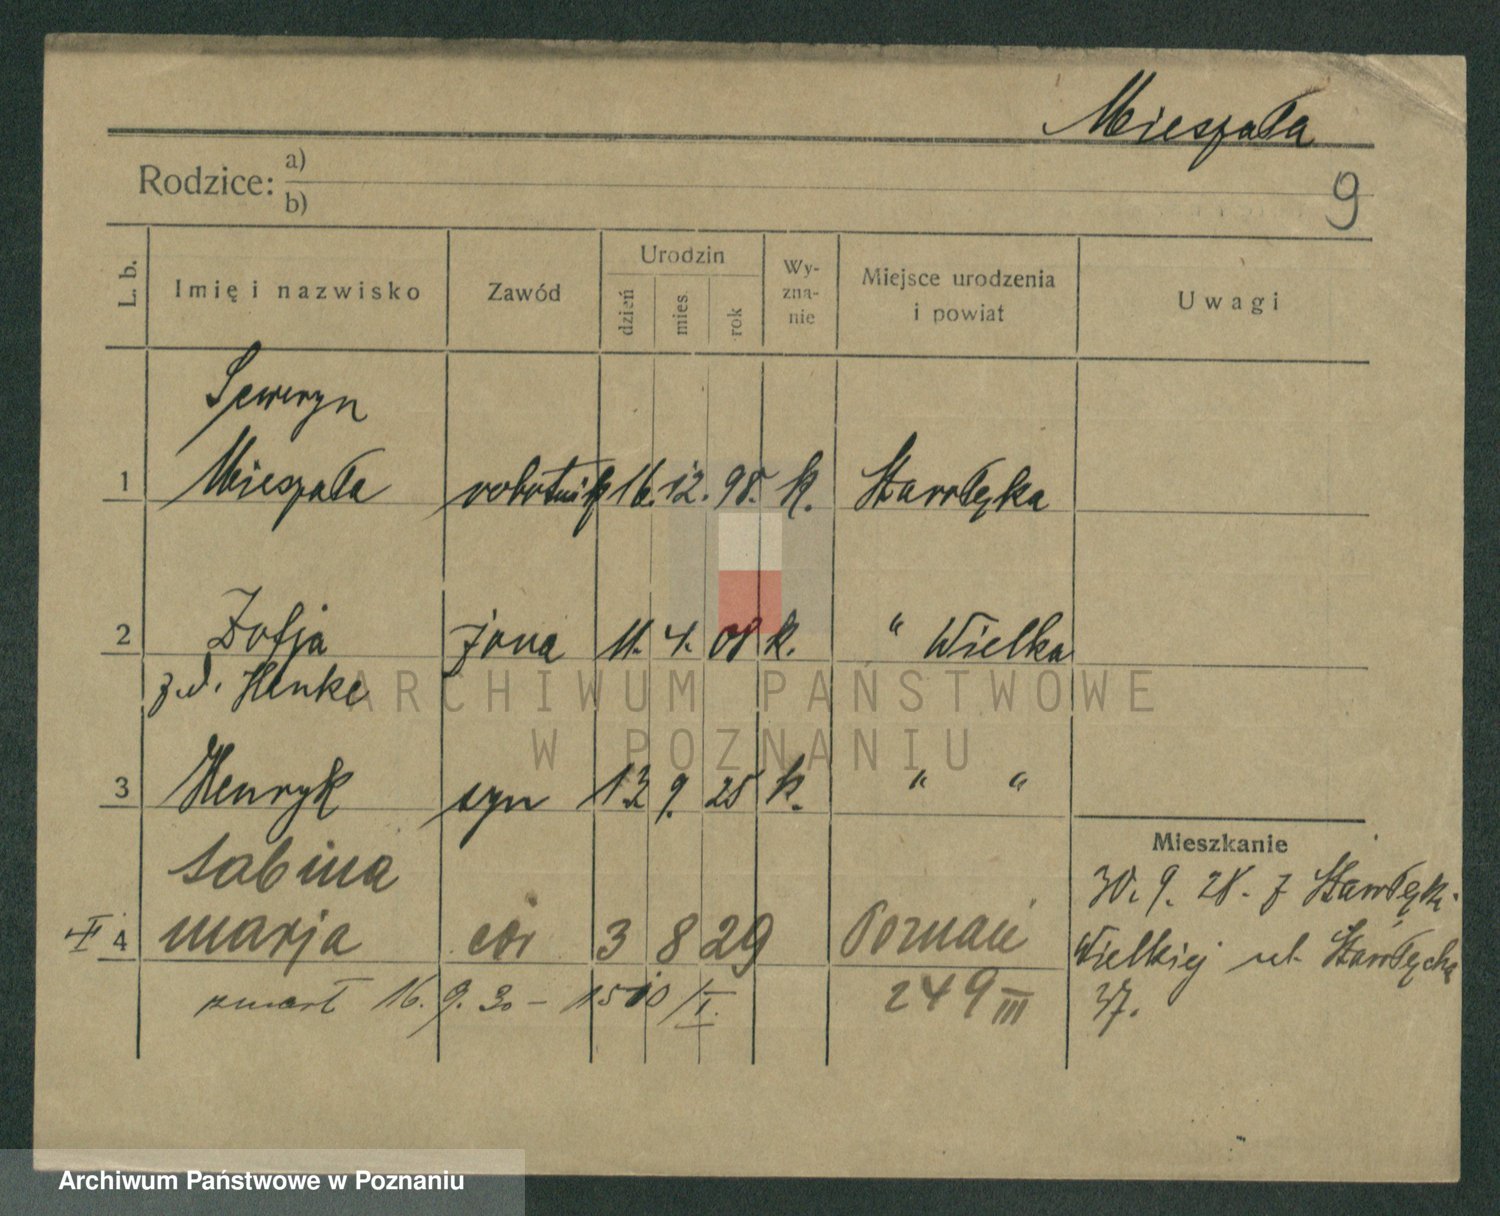 Mieszała
Rodzice: a)
b)
9
L. b. Imię i nazwisko Zawód Urodzin dzień mies. rok Wy-zna-nie Miejsce urodzenia i powiat Uwagi
Seweryn
1 Mieszała robotnik 16. 12. 98. k. Starołęka
2 Zofja żona 11. 4. 08 k. " Wielka
z d. Henke
3 Henryk syn 13 9. 28 k. " "
Mieszkanie
Sabina
30. 9. 28. z Starołęk.
4 Marja cór 3 8 29 Poznań
Wielkiej ul. Starołęcka
zmarł 16. 9. 30 - 1510/I.
249 III
37.
ARCHIWUM PAŃSTWOWE
W POZNANIU
Archiwum Państwowe w Poznaniu